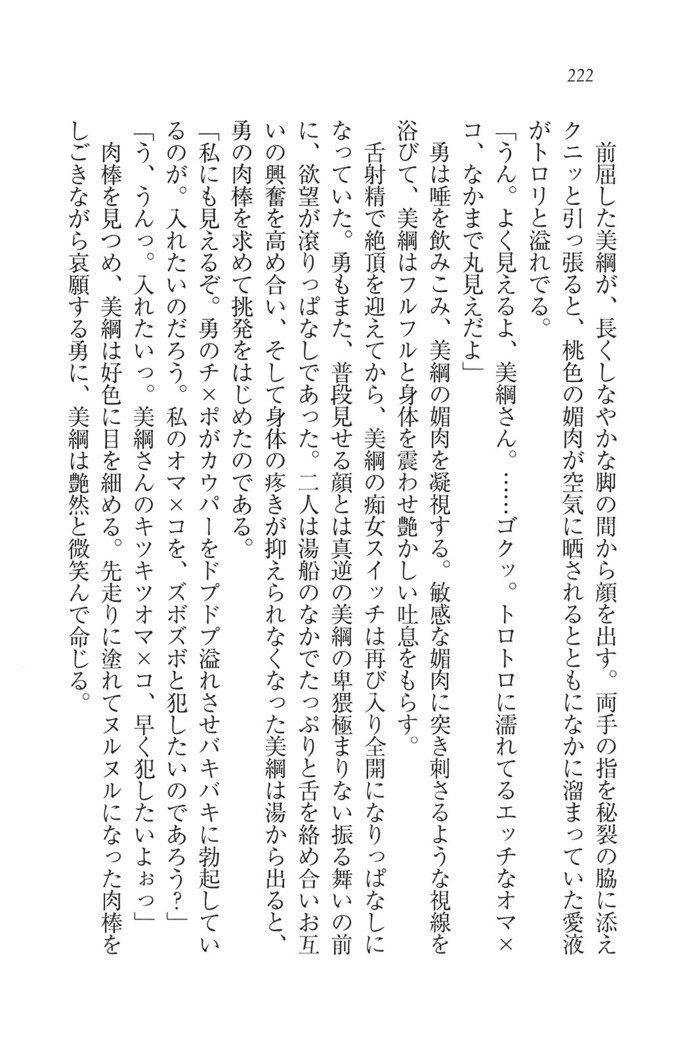 222
前屈した美綱が、長くしなやかな脚の間から顔を出す。両手の指を秘裂の脇に添え
クニッと引っ張ると、桃色の媚肉が空気に晒されるとともになかに溜まっていた愛液
がトロリと溢れでる。
「うん。よく見えるよ、美綱さん。……ゴクッ。トロトロに濡れてるエッチなオマ×
コ、なかまで丸見えだよ」
勇は唾を飲みこみ、美綱の媚肉を凝視する。敏感な媚肉に突き刺さるような視線を
浴びて、美綱はフルフルと身体を震わせ艶かしい吐息をもらす。
舌射精で絶頂を迎えてから、美綱の痴女スイッチは再び入り全開になりっぱなしに
なっていた。勇もまた、普段見せる顔とは真逆の美綱の卑猥極まりない振る舞いの前
に、欲望が滾りっぱなしであった。二人は湯船のなかでたっぷりと舌を絡め合いお互
いの興奮を高め合い、そして身体の疼きが抑えられなくなった美綱は湯から出ると、
勇の肉棒を求めて挑発をはじめたのである。
「私にも見えるぞ。勇のチ×ポがカウパーをドプドプ溢れさせバキバキに勃起してい
るのが。入れたいのだろう。私のオマ×コを、ズボズボと犯したいのであろう？」
「う、うんっ。入れたいっ。美綱さんのキツキツオマ×コ、早く犯したいよぉっ」
肉棒を見つめ、美綱は好色に目を細める。先走りに塗れてヌルヌルになった肉棒を
しごきながら哀願する勇に、美綱は艶然と微笑んで命じる。